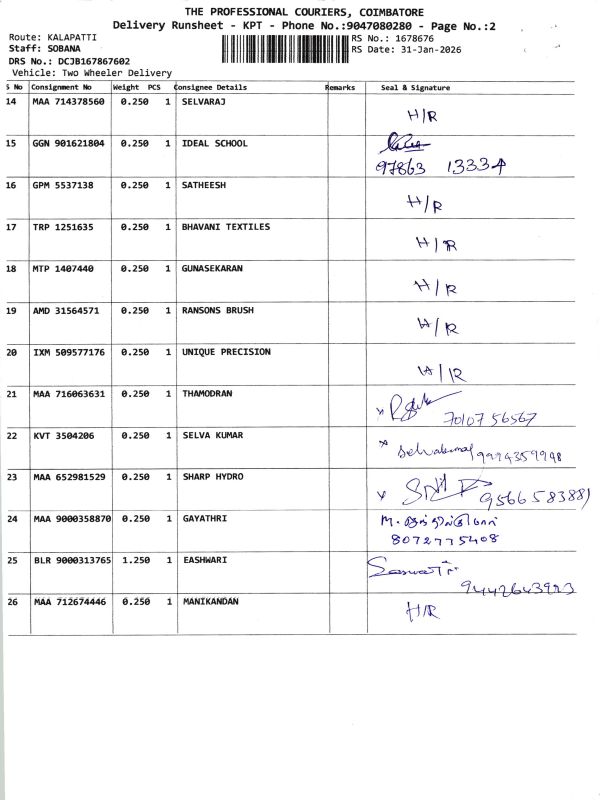 THE PROFESSIONAL COURIERS, COIMBATORE
Delivery Runsheet - KPT - Phone No.:9047080280 - Page No.:2
Route: KALAPATTI
RS No.: 1678676
Staff: SOBANA
RS Date: 31-Jan-2026
DRS No.: DCJB167867602
Vehicle: Two Wheeler Delivery
S No Consignment No Weight PCS Consignee Details Remarks Seal & Signature
14 MAA 714378560 0.250 1 SELVARAJ H/R
15 GGN 901621804 0.250 1 IDEAL SCHOOL
97863 13334
16 GPM 5537138 0.250 1 SATHEESH H/R
17 TRP 1251635 0.250 1 BHAVANI TEXTILES H/R
18 MTP 1407440 0.250 1 GUNASEKARAN H/R
19 AMD 31564571 0.250 1 RANSONS BRUSH H/R
20 IXM 509577176 0.250 1 UNIQUE PRECISION H/R
21 MAA 716063631 0.250 1 THAMODRAN
70107 56567
22 KVT 3504206 0.250 1 SELVA KUMAR Selvakumar
23 MAA 652981529 0.250 1 SHARP HYDRO
9566583881
24 MAA 9000358870 0.250 1 GAYATHRI
8072775408
25 BLR 9000313765 1.250 1 EASHWARI
9442643923
26 MAA 712674446 0.250 1 MANIKANDAN H/R